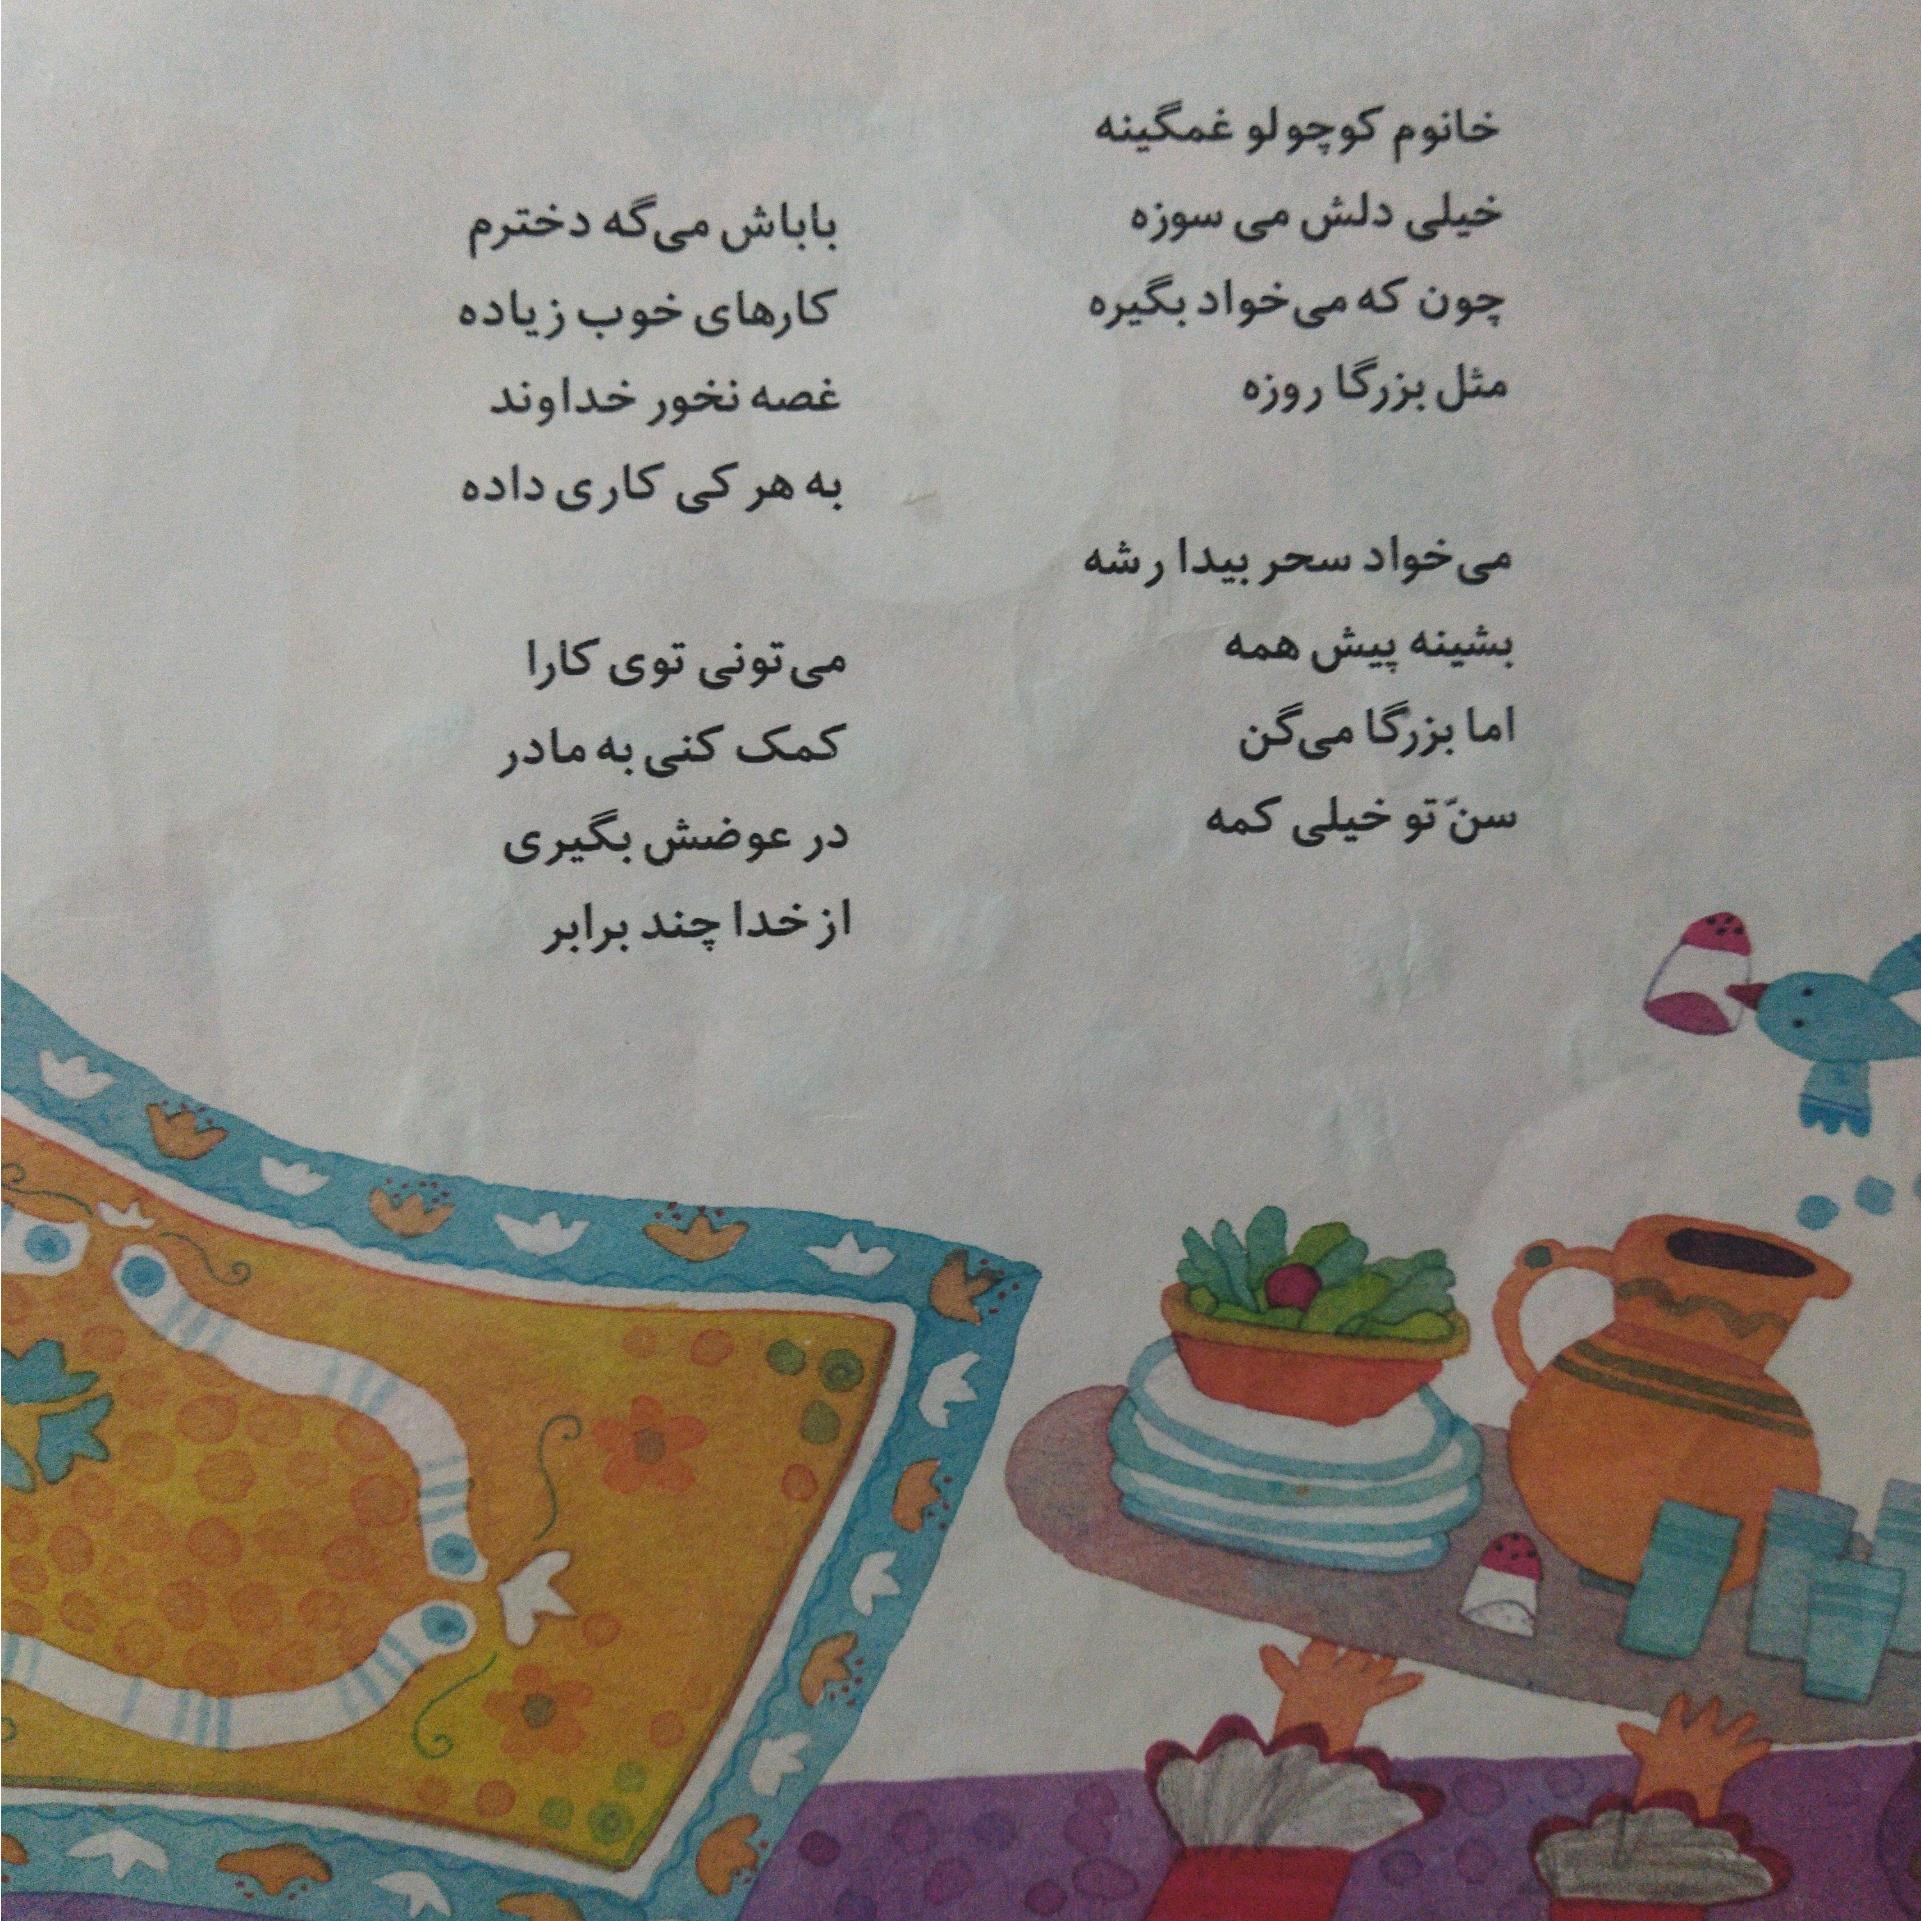 خانوم کوچولو غمگینه
خیلی دلش می سوزه
چون که می‌خواد بگیره
مثل بزرگا روزه
می‌خواد سحر بیدا رشه
بشینه پیش همه
اما بزرگا می‌گن
سنّ تو خیلی کمه
باباش می‌گه دخترم
کارهای خوب زیاده
غصه نخور خداوند
به هر کی کاری داده
می‌تونی توی کارا
کمک کنی به مادر
در عوضش بگیری
از خدا چند برابر